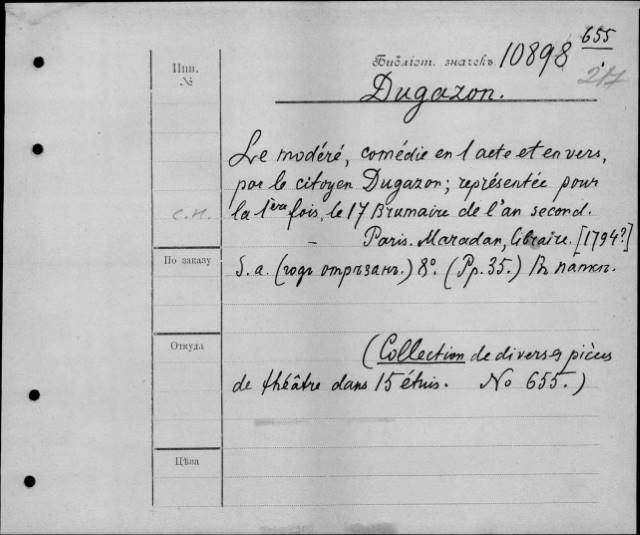 655
Инв. №
Библіот. значекъ 10898
217
Dugazon.
Le modéré, comédie en 1 acte et en vers,
par le citoyen Dugazon; représentée pour
с.п.
la 1ère fois, le 17 Brumaire de l'an second.
– Paris. Maradan, libraire. [1794?]
По заказу
S. a. (годъ отрѣзан.) 8º. (Pp. 35.) Въ папк.
Откуда
(Collection de diverses pièces
de théâtre dans 15 étuis. No 655.)
Цѣна